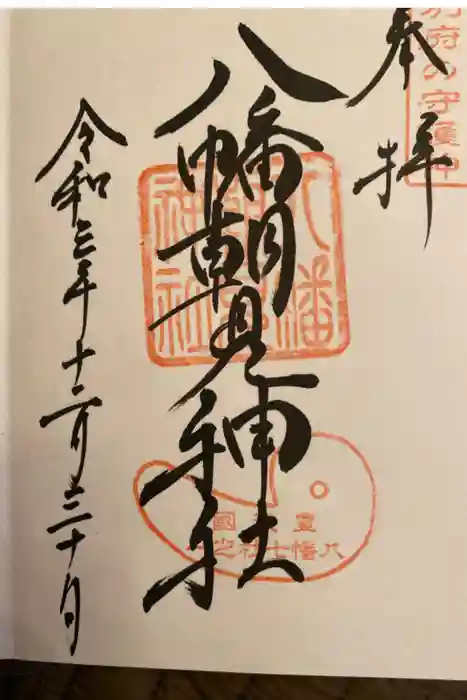 奉拝
別府の守護神
八幡朝見神社
八幡朝見神社
豊後國
八幡七社之
令和三年十二月三十日